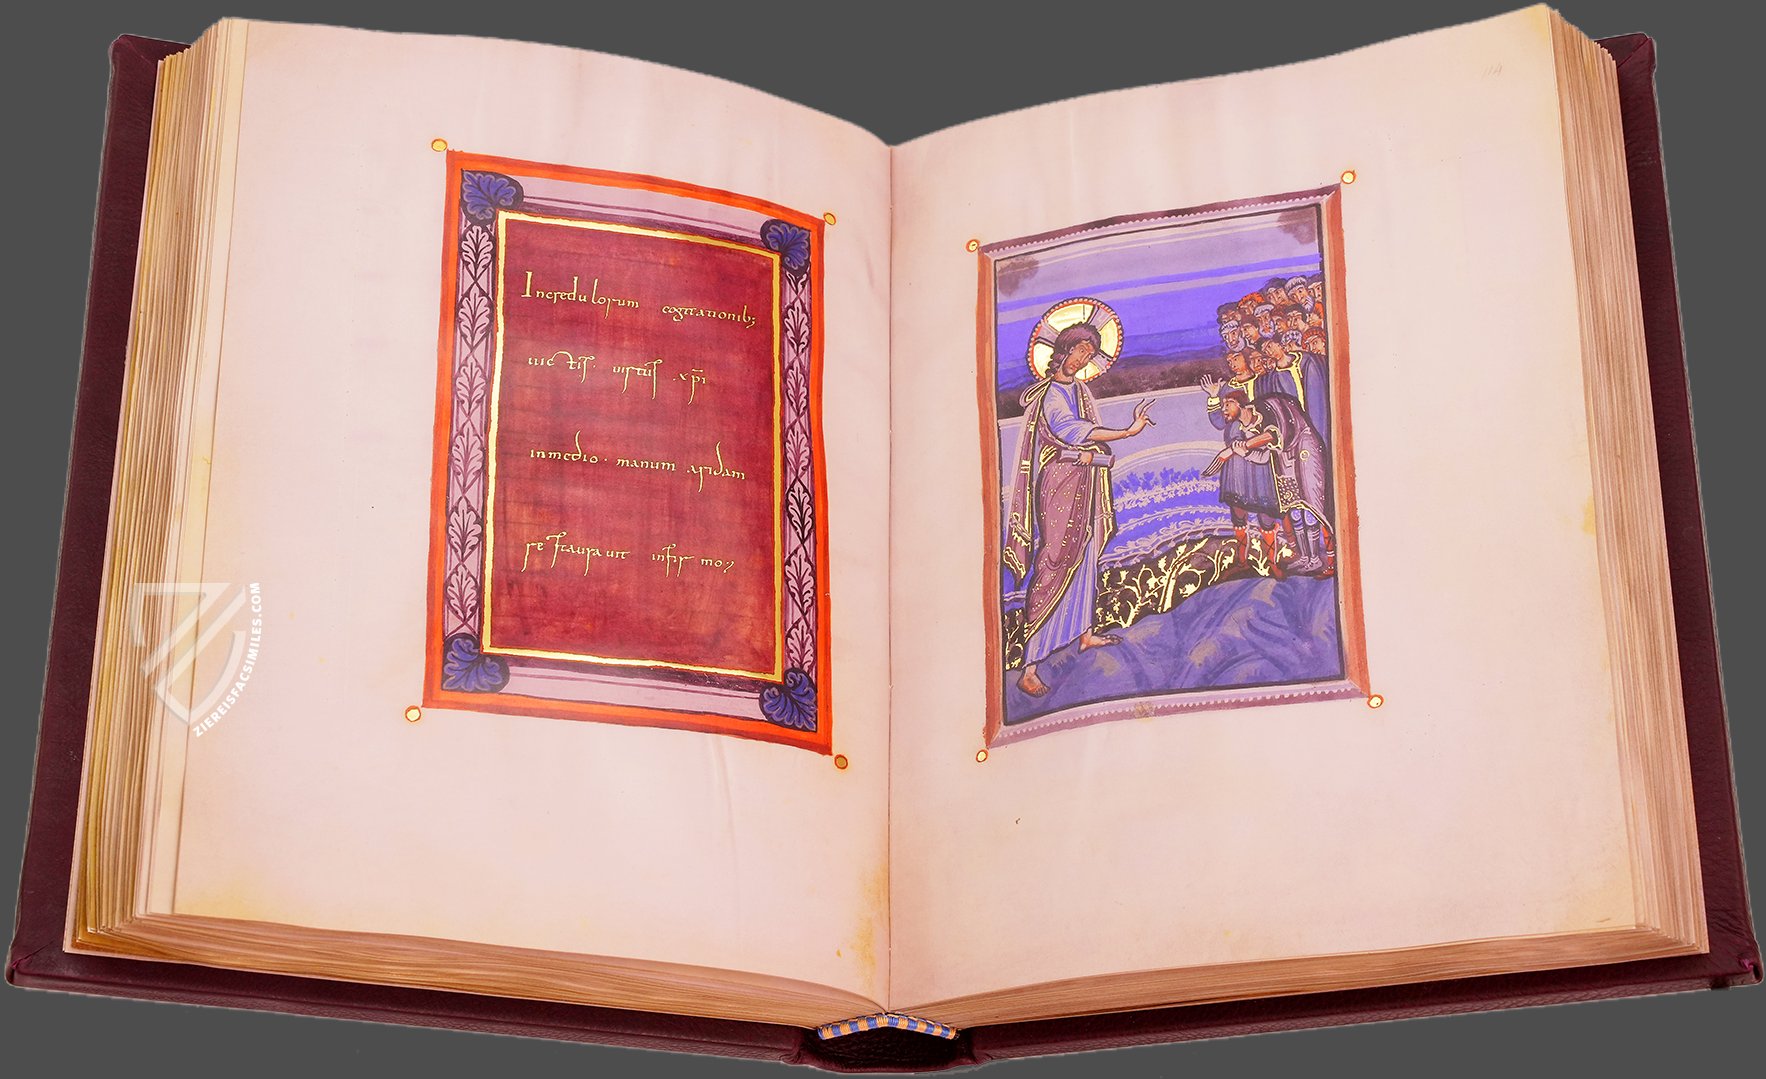 Incredulorum cogitationib;
uictis. uirtus xp̄i
in medio. manum aridam
restaurauit infirmo
114
ZIEREISFACSIMILES.COM